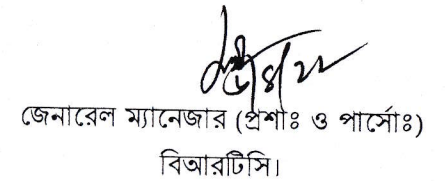 জেনারেল ম্যানেজার (প্রশাঃ ও পার্সোঃ)
বিআরটিসি।